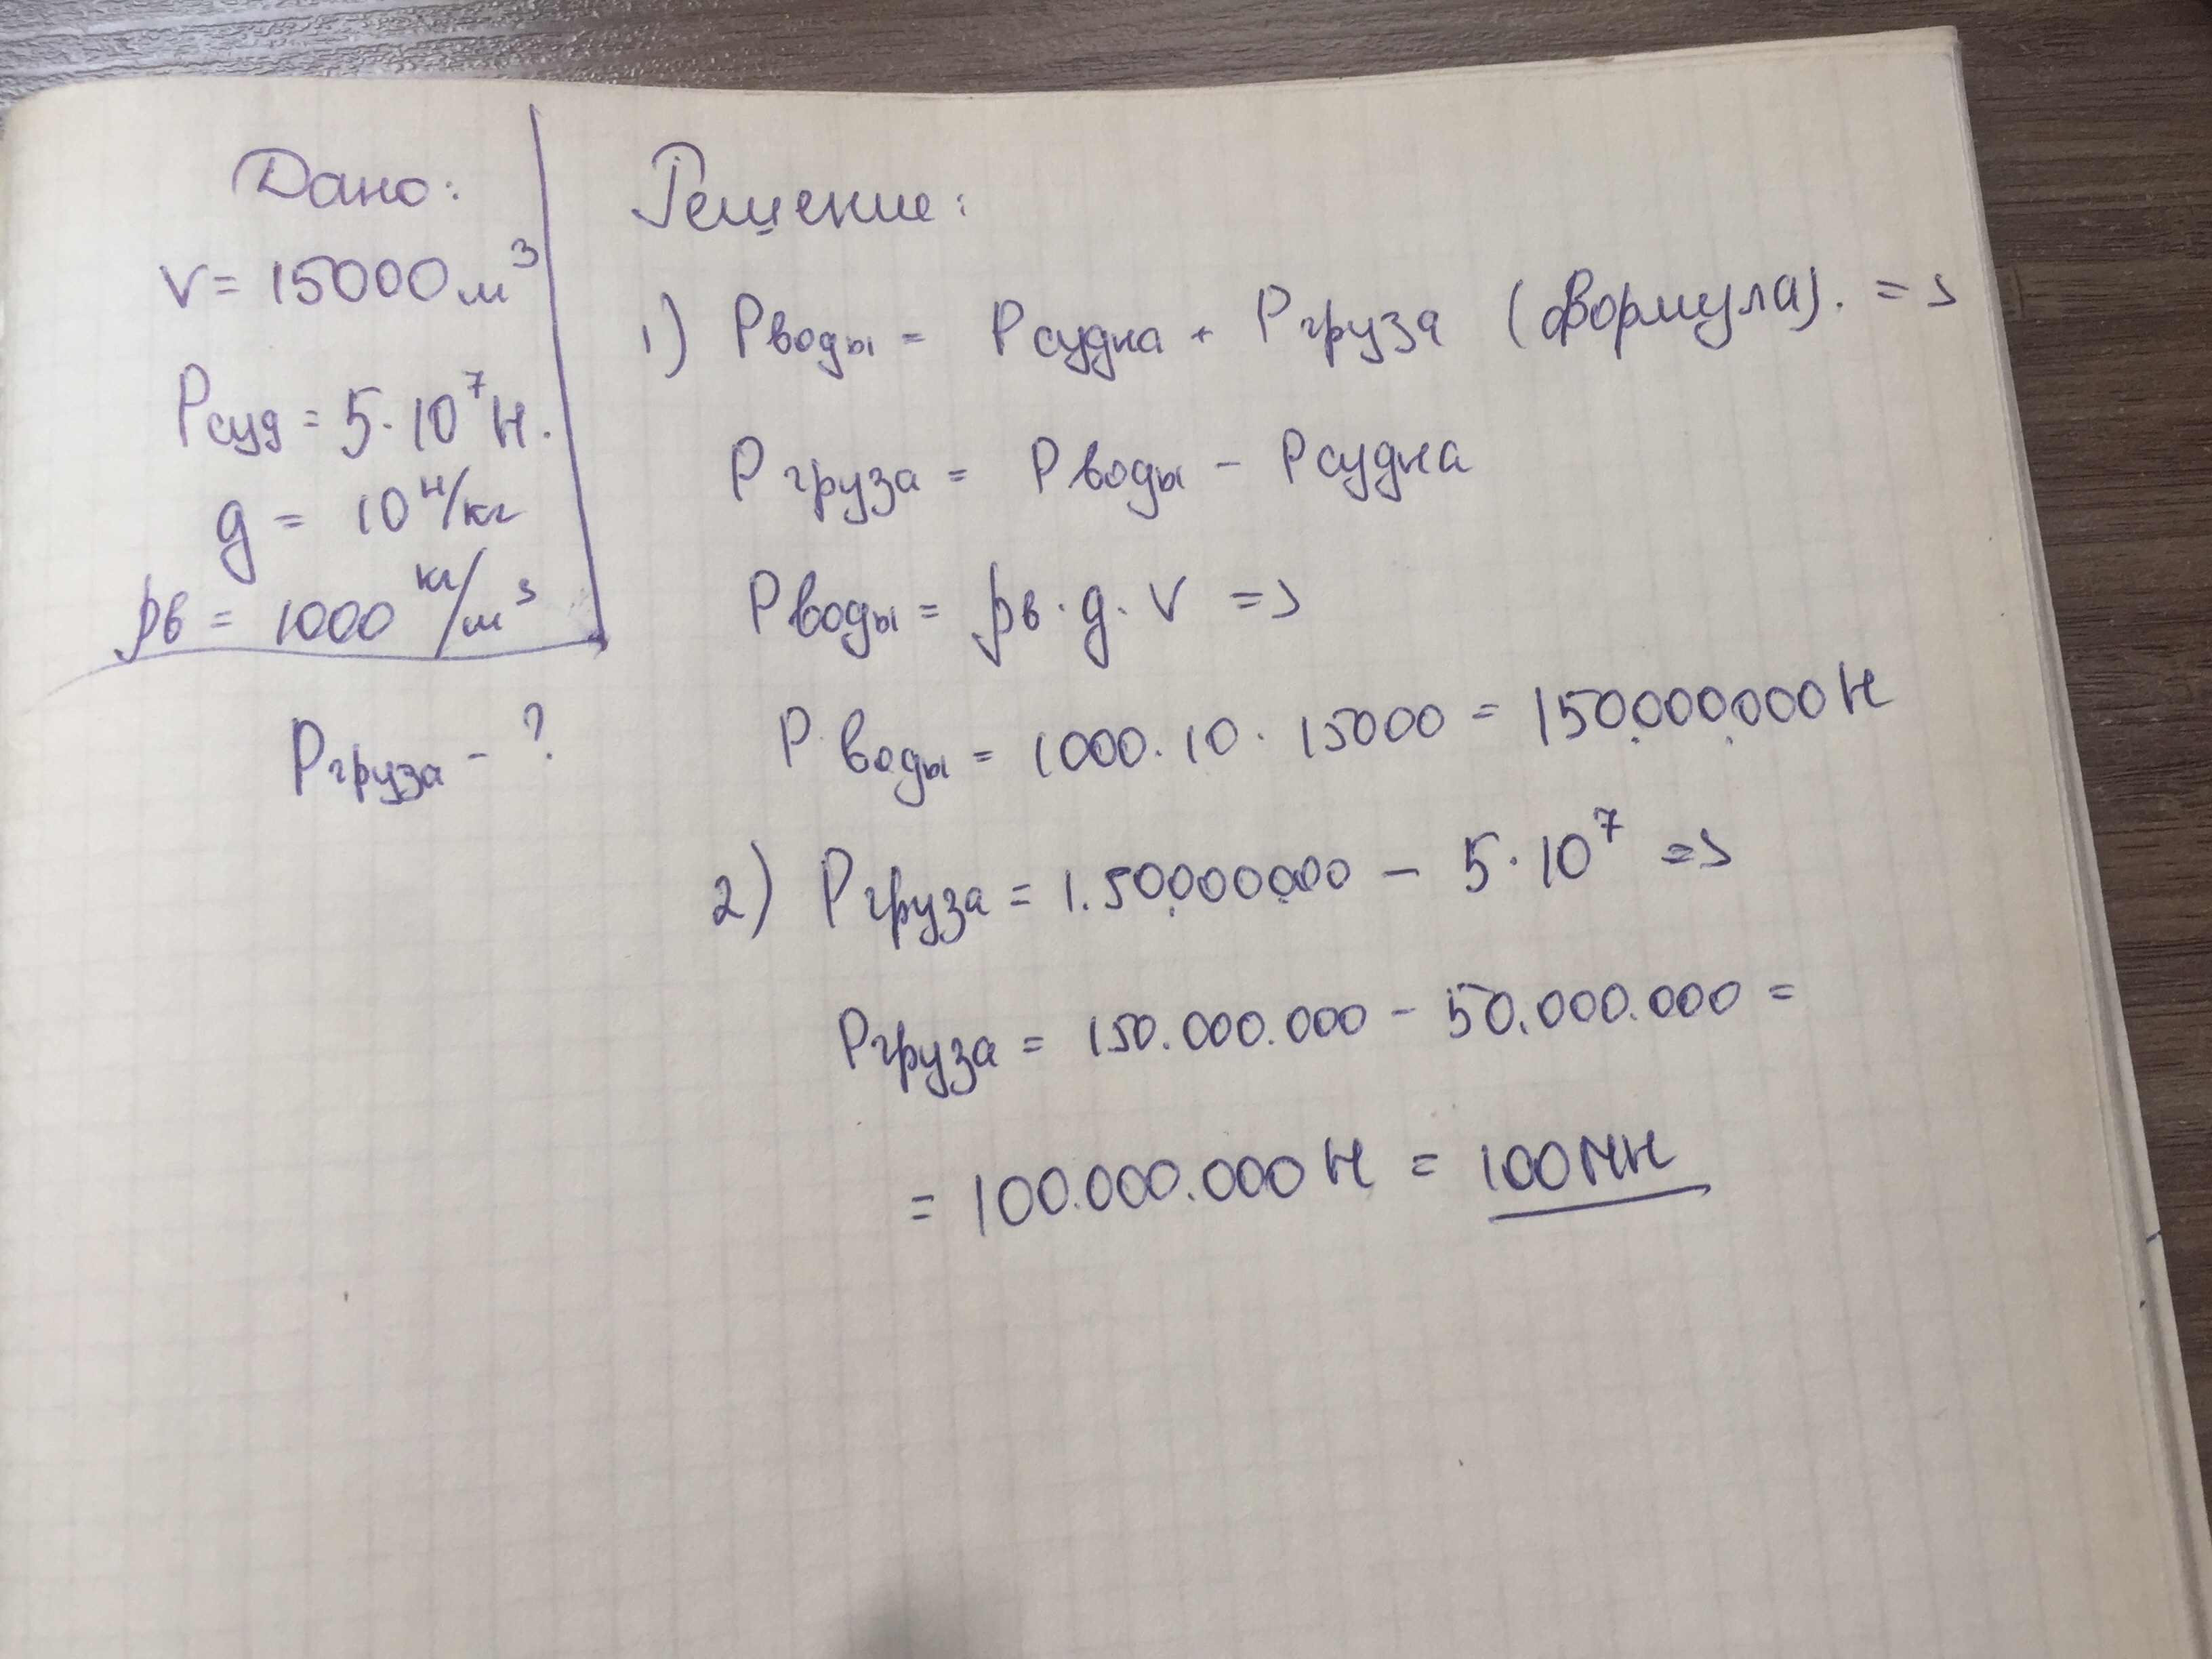 Дано:
V = 15000 м³
Pсуд = 5·10⁷ Н.
g = 10 Н/кг
ρв = 1000 кг/м³
Pгруза - ?
Решение:
1) Pводы = Pсудна + Pгруза (формула). =>
Pгруза = Pводы - Pсудна
Pводы = ρв·g·V =>
Pводы = 1000·10·15000 = 150.000.000 Н
2) Pгруза = 1.50.000.000 - 5·10⁷ =>
Pгруза = 150.000.000 - 50.000.000 =
= 100.000.000 Н = 100 МН